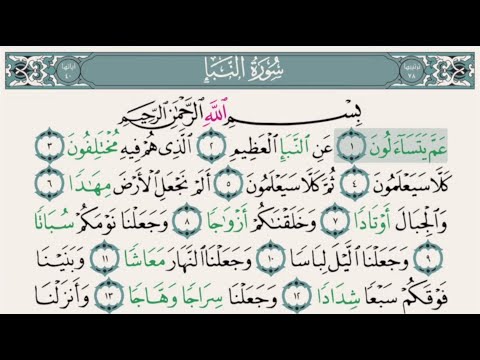 آياتها ٤٠ سُورَةُ النَّبَإِ ترتيبها ٧٨
بِسْمِ اللَّهِ الرَّحْمَٰنِ الرَّحِيمِ
عَمَّ يَتَسَاءَلُونَ ١ عَنِ النَّبَإِ الْعَظِيمِ ٢ الَّذِي هُمْ فِيهِ مُخْتَلِفُونَ ٣
كَلَّا سَيَعْلَمُونَ ٤ ثُمَّ كَلَّا سَيَعْلَمُونَ ٥ أَلَمْ نَجْعَلِ الْأَرْضَ مِهَٰدًا ٦
وَالْجِبَالَ أَوْتَادًا ٧ وَخَلَقْنَاكُمْ أَزْوَاجًا ٨ وَجَعَلْنَا نَوْمَكُمْ سُبَاتًا
٩ وَجَعَلْنَا اللَّيْلَ لِبَاسًا ١٠ وَجَعَلْنَا النَّهَارَ مَعَاشًا ١١ وَبَنَيْنَا
فَوْقَكُمْ سَبْعًا شِدَادًا ١٢ وَجَعَلْنَا سِرَاجًا وَهَّاجًا ١٣ وَأَنزَلْنَا